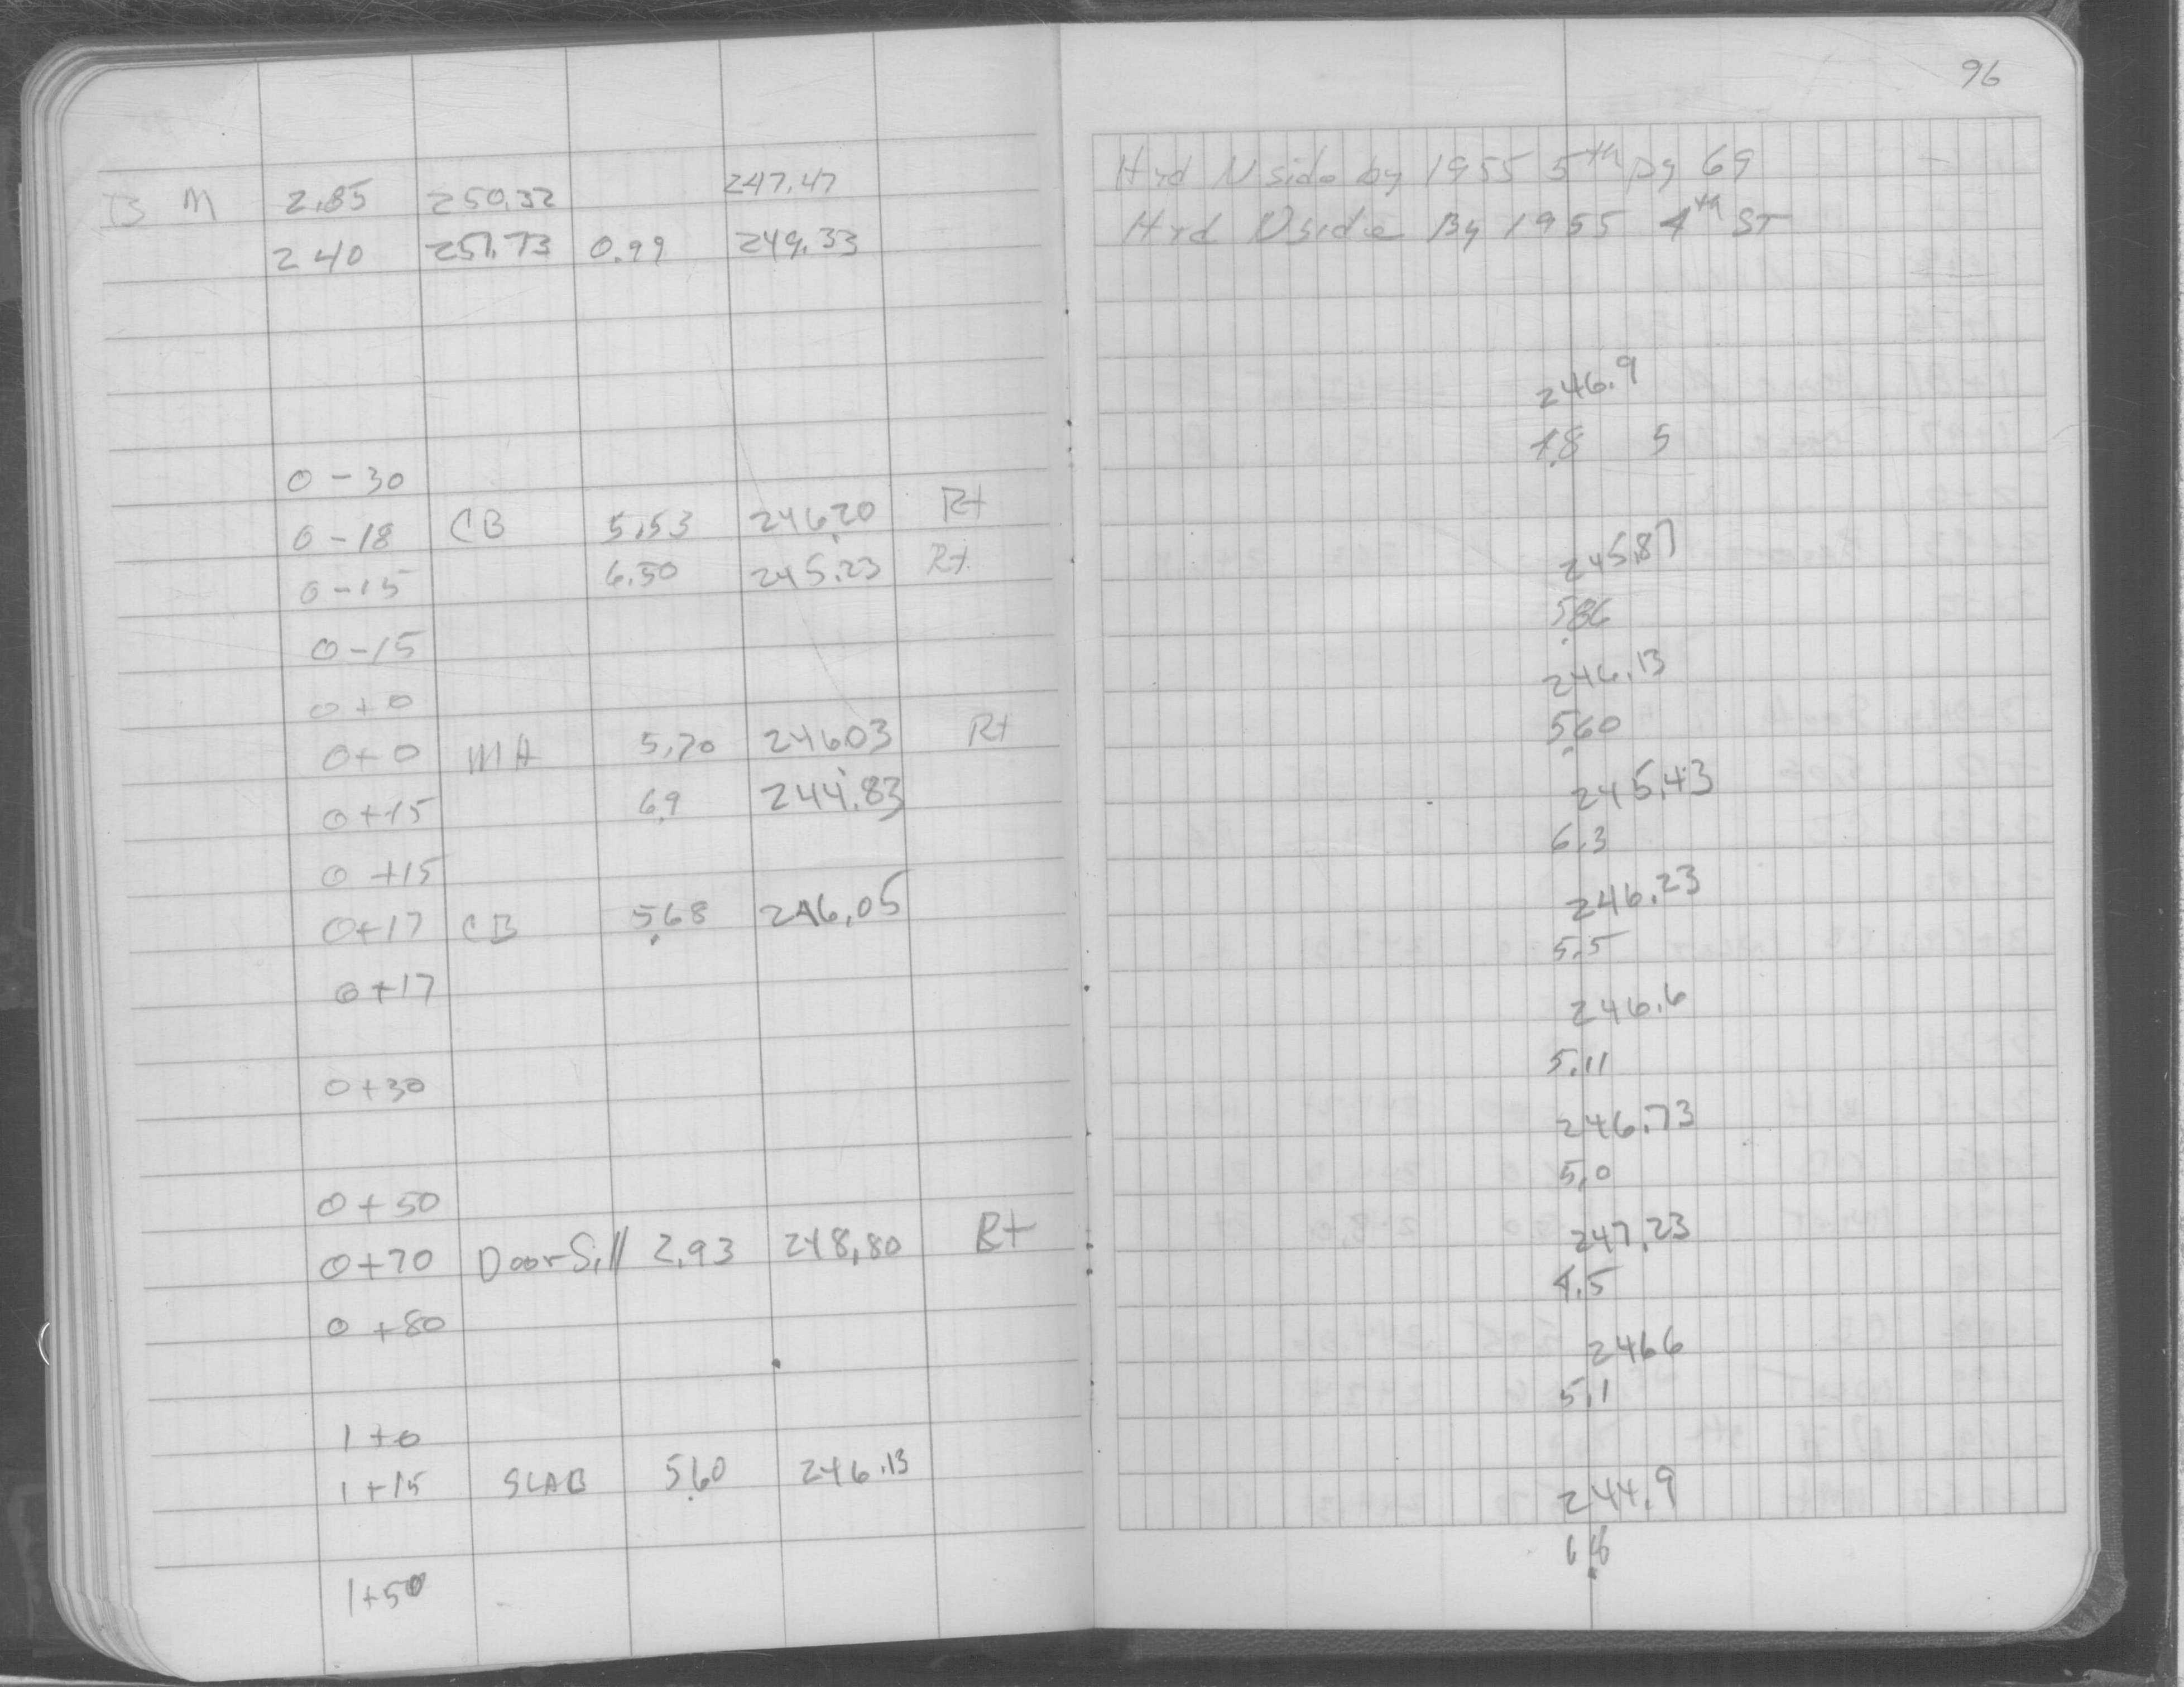 B M 2.85 250.32 247.47
2 40 251.73 0.99 249.33
0 - 30
0 - 18 CB 5.53 246.20 Rt
0 - 15 6.50 245.23 Rt
0 - 15
0 + 0
0 + 0 MH 5.70 246.03 Rt
0 + 15 6.9 244.83
0 + 15
0 + 17 CB 5.68 246.05
0 + 17
0 + 30
0 + 50
0 + 70 Door Sill 2.93 248.80 Rt
0 + 80
1 + 0
1 + 15 SLAB 5.60 246.13
1 + 50
96
Hyd N side by 1955 5th pg 69
Hyd N side By 1955 4th ST
246.9
4.8 5
245.87
5.86
246.13
5.60
245.43
6.3
246.23
5.5
246.6
5.11
246.73
5.0
247.23
4.5
246.6
5.1
244.9
6.8